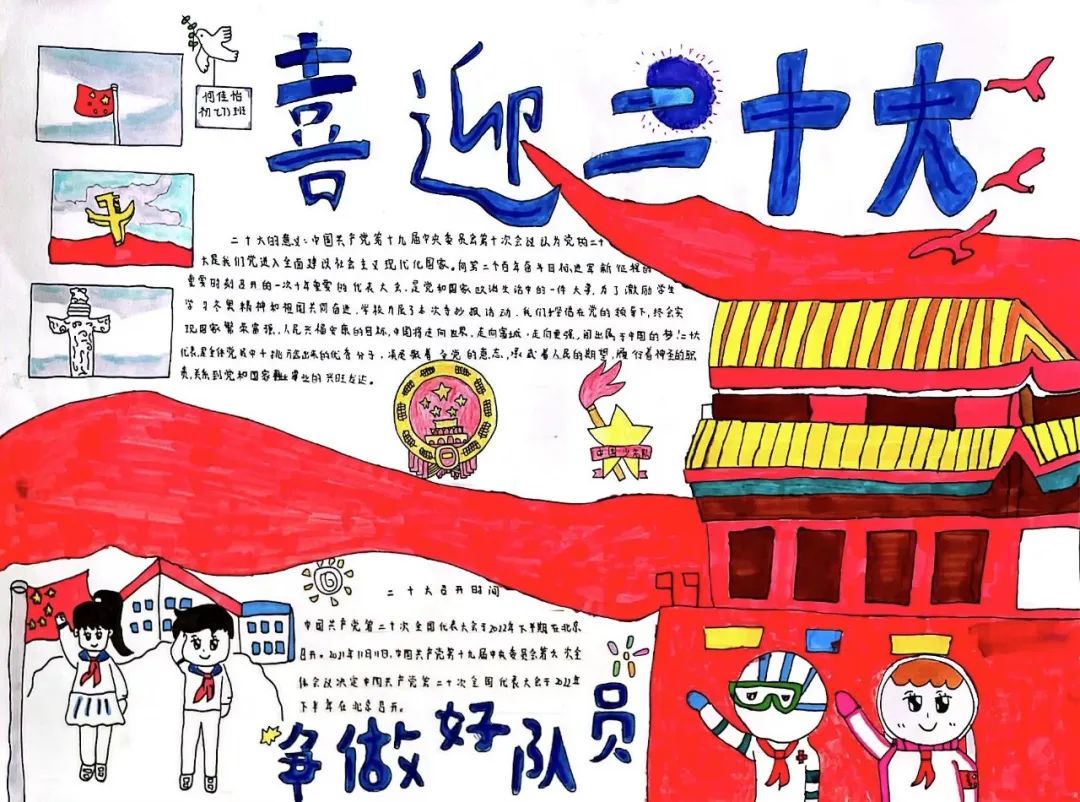 喜迎二十大
何佳怡
二十大的意义:中国共产党第十九届中央委员会第七次会议认为党的二十
大是我们党进入全面建设社会主义现代化国家。向第二个百年奋斗目标进军新征程的
重要时刻召开的一次十分重要的代表大会,是党和国家政治生活中的一件大事,为了激励学生
学习冬奥精神和祖国共同奋进,学校力展了本次手抄报活动,我们坚信在党的领导下,终会实
现国家繁荣富强,人民幸福安康的目标,中国将走向世界,走向富强,走向更强,闯出属于中国的梦!二十大
代表,是全体党员中
的优秀分子,
着全党的意志,
着人民的期望,履行着神圣的职
责,关系到党和国家事业的兴旺发达。
中国少先队
二十大召开时间
中国共产党第二十次全国代表大会于2022年下半期在北京
召开。2021年11月11日,中国共产党第十九届中央委员会第六次全
体会议决定中国共产党第二十次全国代表大会于2022年
下半年在北京召开。
争做好队员